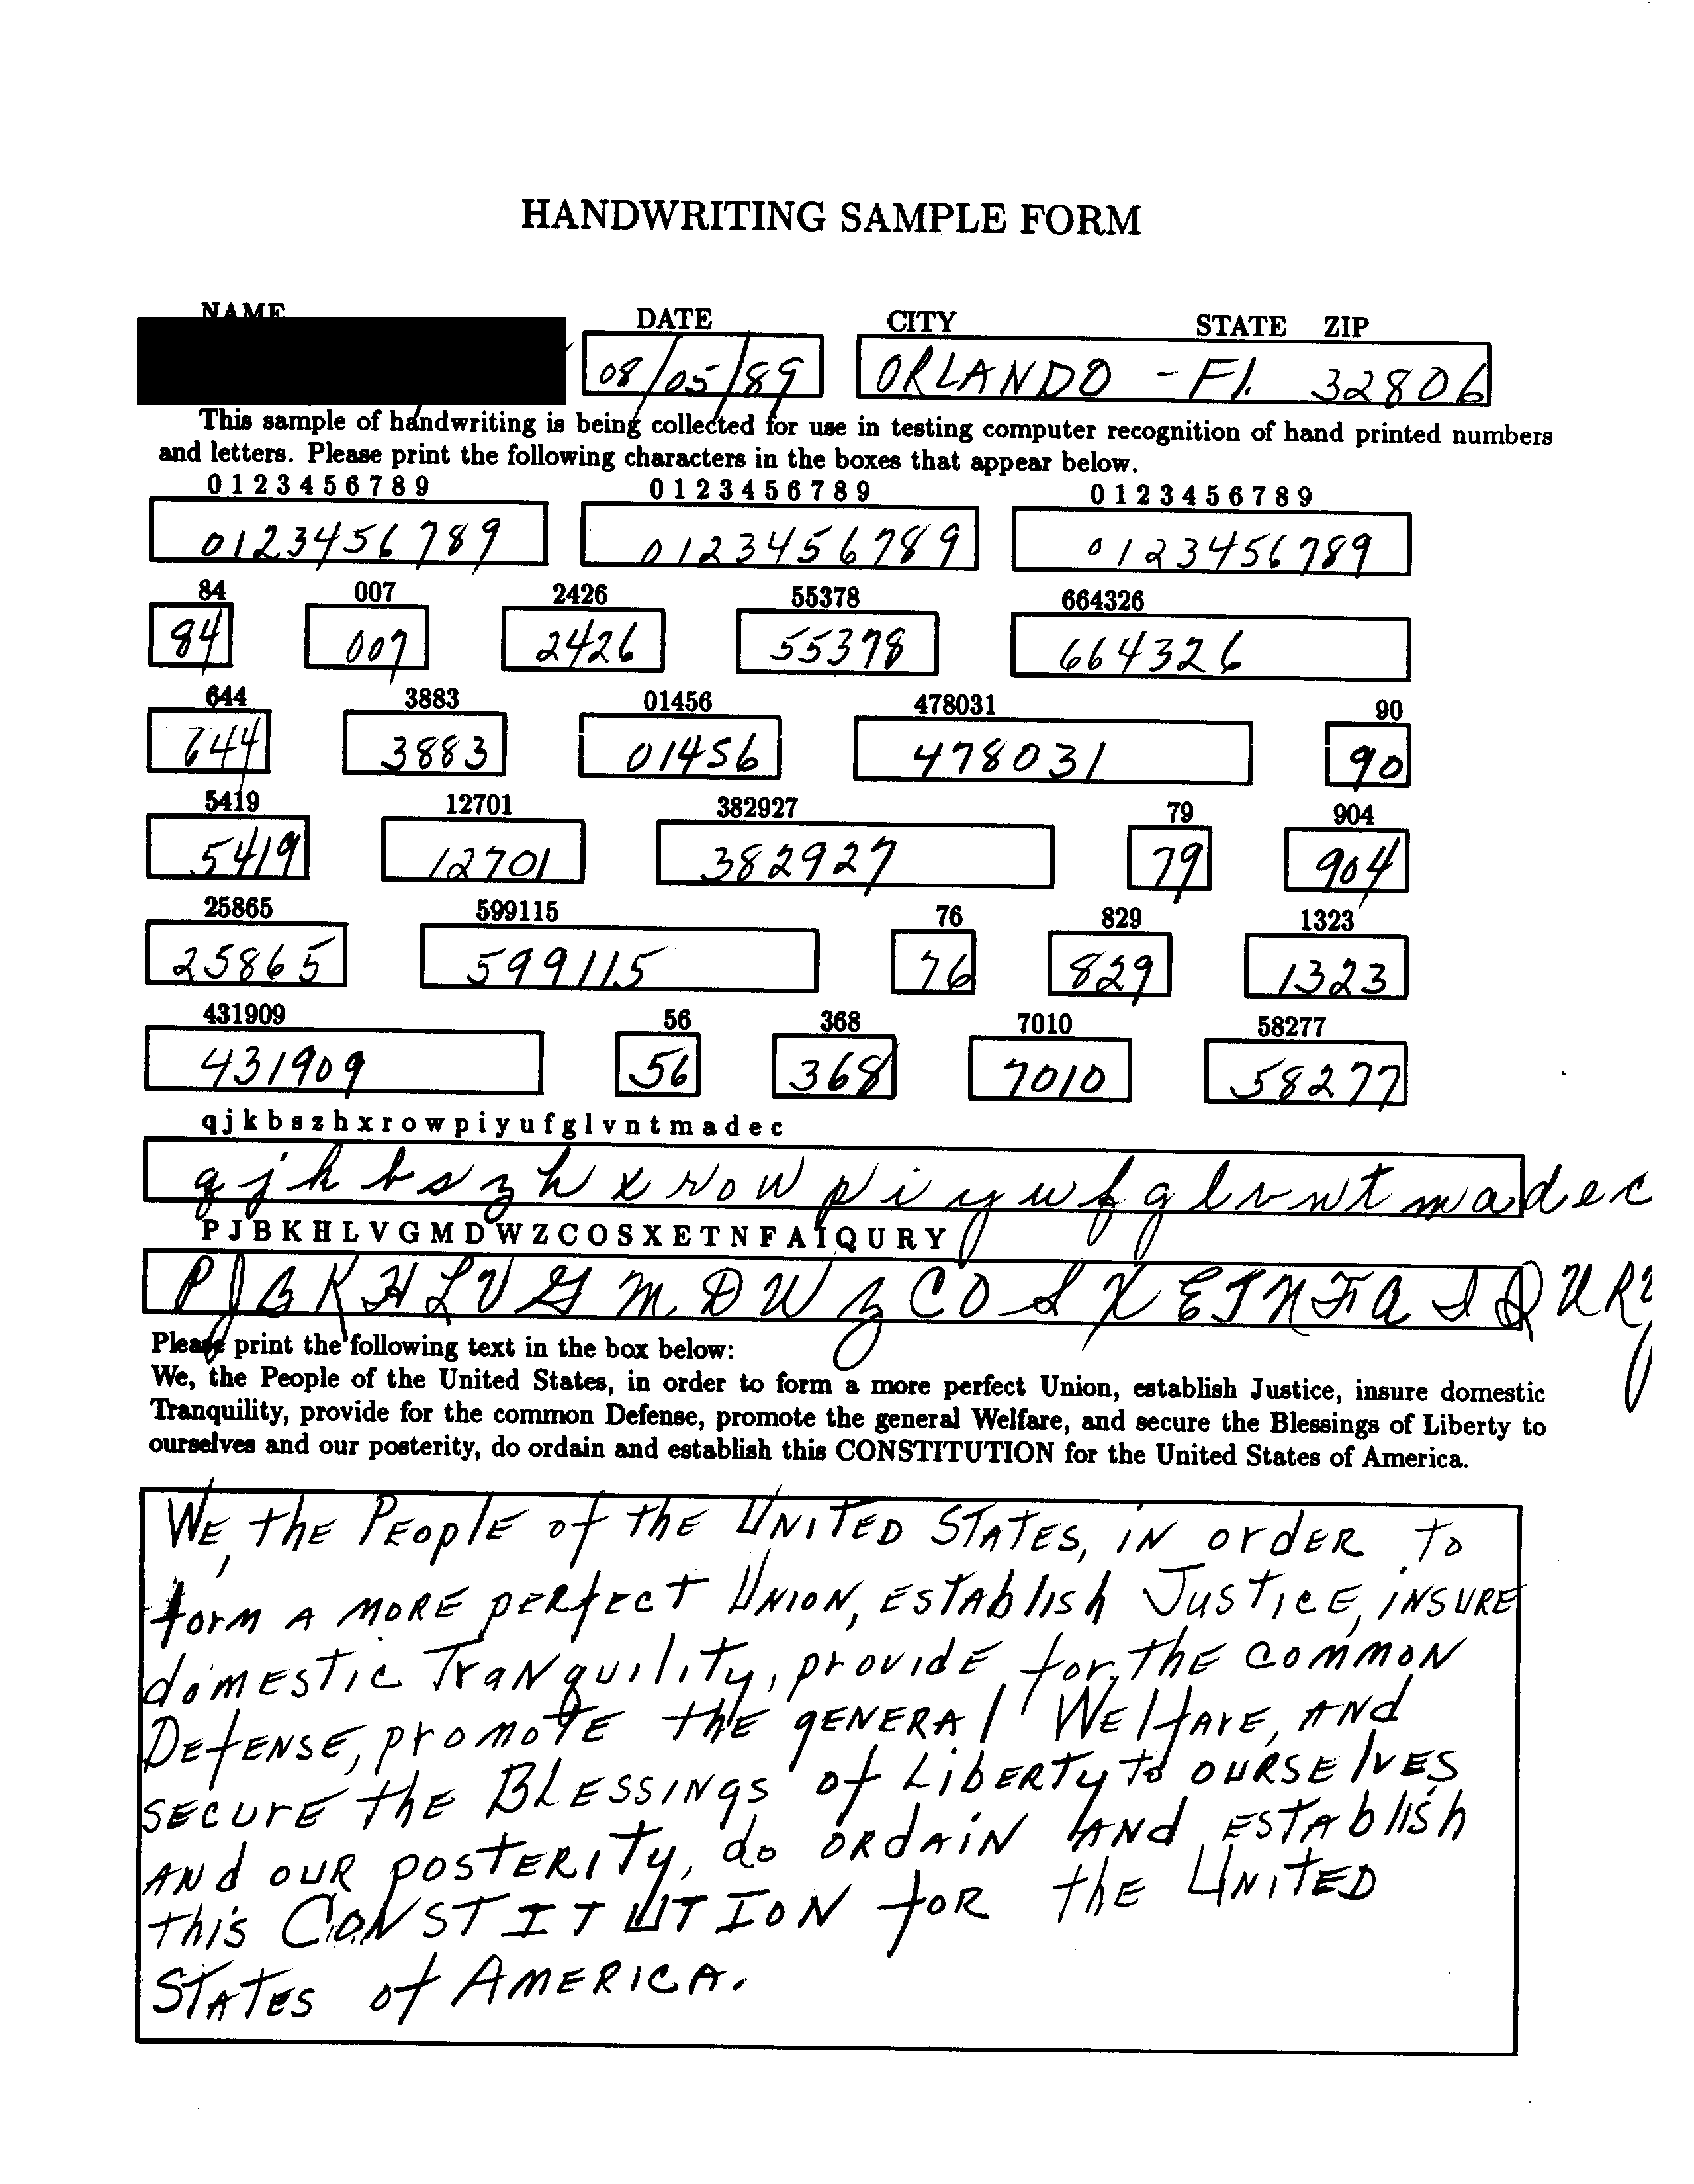 HANDWRITING SAMPLE FORM
NAME DATE CITY STATE ZIP
08/05/89 ORLANDO - Fl. 32806
This sample of handwriting is being collected for use in testing computer recognition of hand printed numbers
and letters. Please print the following characters in the boxes that appear below.
0 1 2 3 4 5 6 7 8 9 0 1 2 3 4 5 6 7 8 9 0 1 2 3 4 5 6 7 8 9
0123456789 0123456789 0123456789
84 007 2426 55378 664326
84 007 2426 55378 664326
644 3883 01456 478031 90
644 3883 01456 478031 90
5419 12701 382927 79 904
5419 12701 382927 79 904
25865 599115 76 829 1323
25865 599115 76 829 1323
431909 56 368 7010 58277
431909 56 368 7010 58277
q j k b s z h x r o w p i y u f g l v n t m a d e c
q j k b s z h x r o w p i y u f g l v n t m a d e c
P J B K H L V G M D W Z C O S X E T N F A I Q U R Y
P J B K H L V G M. D W Z C O S X E T N F A I Q U R Y
Please print the following text in the box below:
We, the People of the United States, in order to form a more perfect Union, establish Justice, insure domestic
Tranquility, provide for the common Defense, promote the general Welfare, and secure the Blessings of Liberty to
ourselves and our posterity, do ordain and establish this CONSTITUTION for the United States of America.
WE, thE PEoplE of thE UNITED STATES, iN ordER to
form A MORE pERfECT UNION, ESTAblish JUSTICE, iNSURE
domESTIC TRaNquiliTy, providE for thE COMMON
DEfENSE, promoTE thE gENERAl WElfArE, ANd
SECUrE thE BLESSINgS of LibERTy to OURSElVES
ANd OUR pOSTERITy, do ORdAIN ANd ESTAblish
this CONSTITUTION foR thE UNITED
STATES of AMERICA.